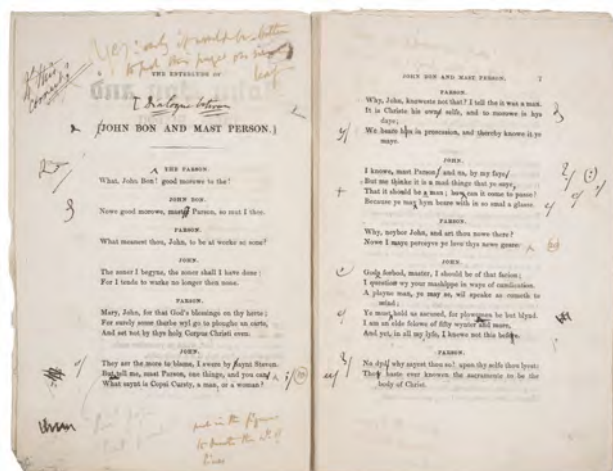 Is this
correct?
Yes: only it would be better
to put this page on new
leaf
THE ENTERLUDE OF
[Dialogue between
JOHN BON AND MAST PERSON.]
THE PARSON.
What, John Bon! good morowe to the!
JOHN BON.
Nowe good morowe, mast Parson, so mut I thee.
PARSON.
What meanest thou, John, to be at worke so sone?
JOHN.
The soner I begyne, the soner shall I have done:
For I tende to warke no longer then none.
PARSON.
Mary, John, for that God's blessinge on thy herte;
For surely some therbe wyl go to ploughe an carte,
And set not by thys holy Corpus Christi even.
JOHN.
They are the more to blame, I swere by saynt Steven.
But tell me, mast Parson, one thinge, and you can
What saynt is Copsi Cursty, a man, or a woman?
put in the figures
to denote the No. of
lines
JOHN BON AND MAST PERSON. 7
PARSON.
Why, John, knoweste not that? I tell the it was a man.
It is Christe his owne selfe, and to morowe is hys
daye;
We beare hym in prosession, and thereby knowe it ye
maye.
JOHN.
I knowe, mast Person and na, by my faye
But me thinke it is a mad thinge that ye saye,
That it should be a man; how can it come to passe?
Because ye may hym beare with in so smal a glasse.
PARSON.
Why, neybor John, and art thou nowe there?
Nowe I maye perceyve ye love thys newe geare.
JOHN.
Gods forbod, master, I should be of that facion;
I question wy your mashippe in waye of cumlication.
A playne man, ye may se, wil speake as cometh to
mind;
Ye must hold us ascused, for plowmen be but blynd.
I am an elde felowe of fifty wynter and more,
And yet, in all my lyfe, I knewe not this before.
PARSON.
No dyd why sayest thou so? upon thy selfe thou lyest:
They haste ever knowen the sacramente to be the
body of Christ.